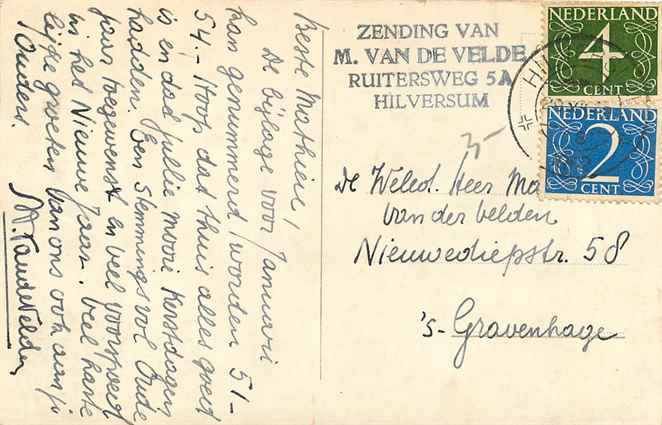 Beste Mathieu!
De bijlage voor Januari
kan genummerd worden 51-
54.- Hoop dat thuis alles goed
is en dat jullie mooie Kerstdagen
hadden. Een stemmingsvol Oude
jaar toegewenst en veel voorspoed
in het Nieuwe Jaar. Veel harte
lijke groeten van ons ook aan je
Ouders.
M. van de Velden
ZENDING VAN
M. VAN DE VELDE
RUITERSWEG 5A
HILVERSUM
3-
De Weled. Heer Ma
van der Velden
Nieuwediepstr. 58
's-Gravenhage
NEDERLAND
4
CENT
NEDERLAND
2
CENT
HIL